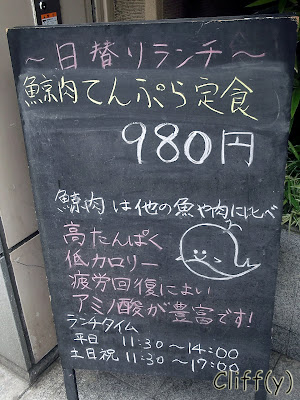 ～日替りランチ～
鯨肉てんぷら定食
980円
鯨肉は他の魚や肉に比べ
高たんぱく
低カロリー
疲労回復によい
アミノ酸が豊富です!
ランチタイム
平日 11:30～14:00
土日祝 11:30～17:00
Cliff(y)